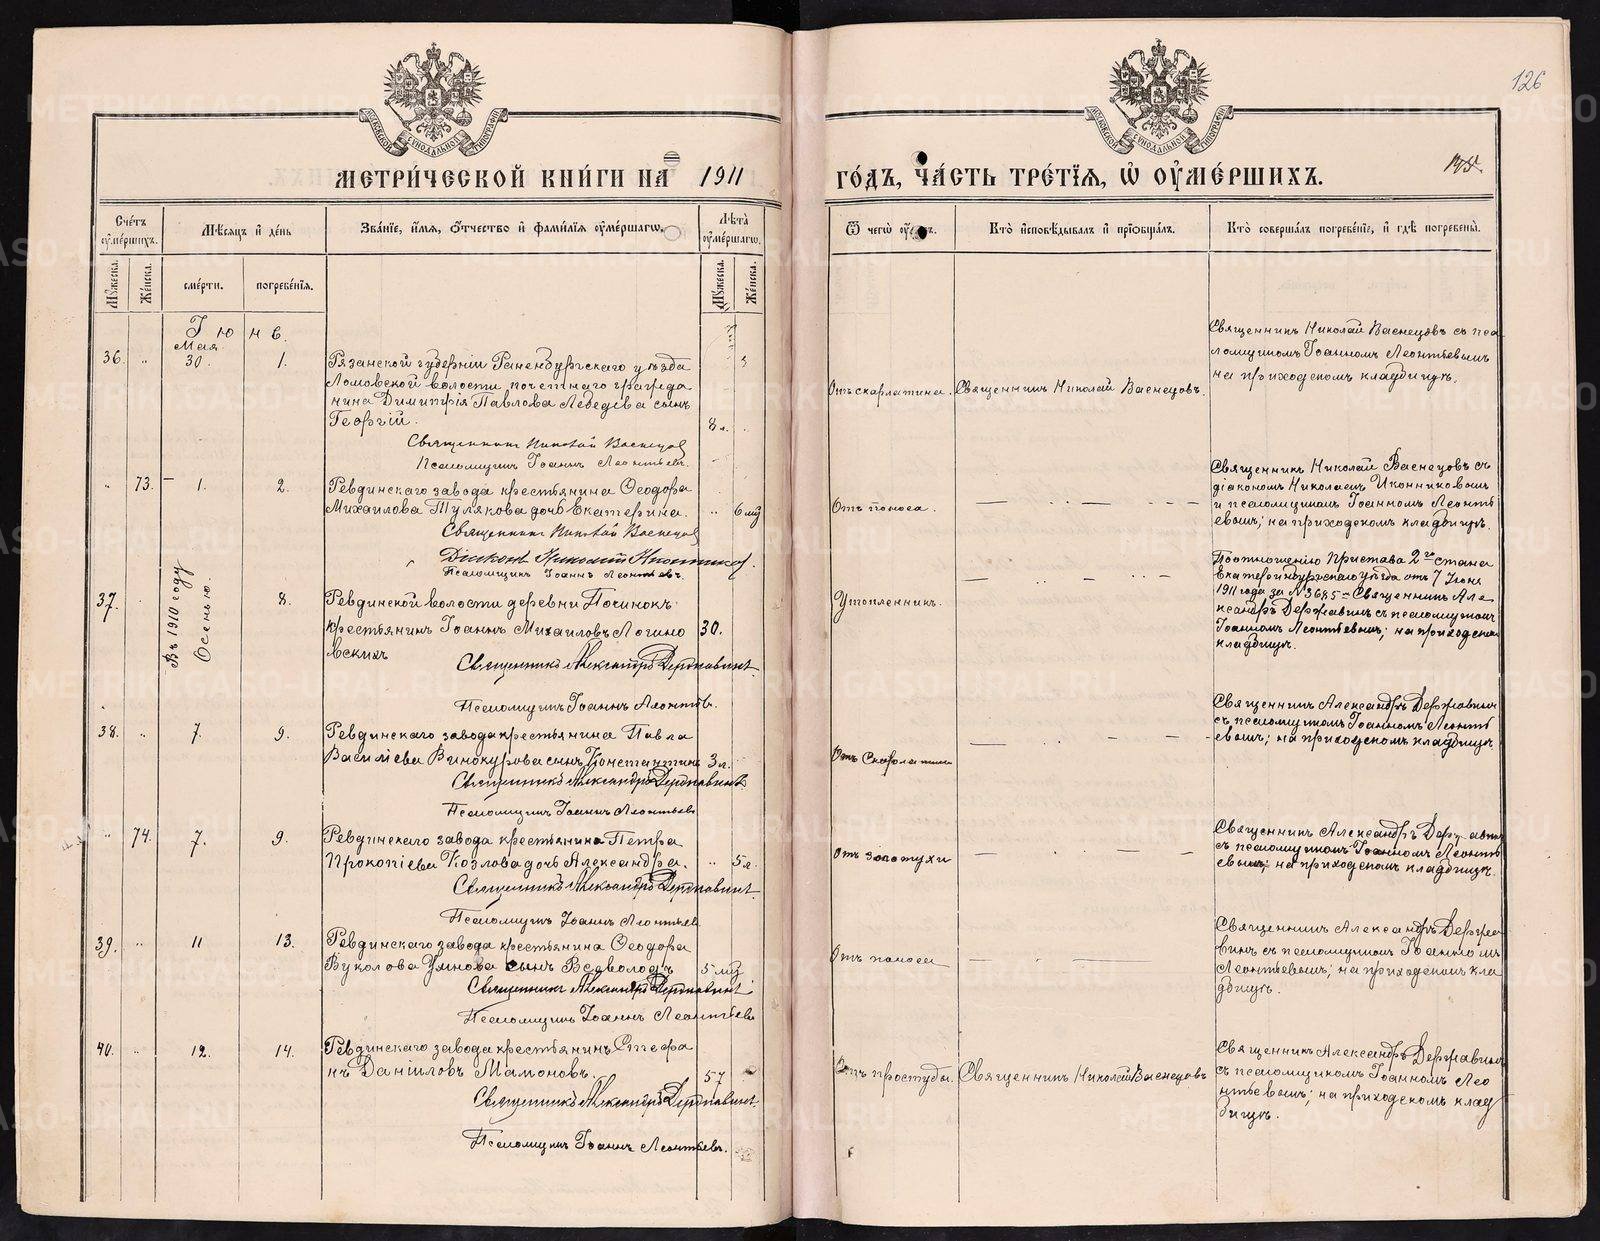 126
МЕТРИ́ЧЕСКОЙ КНИ́ГИ НА 1911
ГО́ДЪ, ЧА́СТЬ ТРЕ́ТІЯ, Ѡ ОУМЕ́РШИХЪ.
Сче́тъ оуме́ршихъ.
Мѣ́сяцъ и де́нь
Зва́ніе, и́мя, ѻ́тчество и фами́лія оуме́ршагѡ.
Лѣ́та оуме́ршагѡ.
Мꙋ́жеска. Же́нска.
сме́рти. погребе́нія.
Мꙋ́жеска. Же́нска.
Кто̀ исповѣ́дывалъ и пріѻбща́лъ.
Кто̀ соверша́лъ погребе́ніе, и гдѣ̀ погребены̀.
Іюне.
Мая
36. " 30 1.
Рязанской губерніи Раненбургскаго уѣзда
Ломовской волости почетнаго гражда
нина Димитрія Павлова Лебедева сынъ
Георгій. 8 л.
Священникъ Николай Васнецовъ
Псаломщикъ Іоаннъ Леонтьевъ.
Отъ скарлатины.
Священникъ Николай Васнецовъ.
Священникъ Николай Васнецовъ съ пса
ломщикомъ Іоанномъ Леонтьевымъ
на приходскомъ кладбищѣ.
" 73. 1. 2.
Ревдинскаго завода крестьянина Ѳеодора
Михаилова Тулякова дочь Екатерина. " 6 мц
Священникъ Николай Васнецовъ
Діаконъ Николай Иконниковъ.
Псаломщикъ Іоаннъ Леонтьевъ.
Отъ поноса.
Священникъ Николай Васнецовъ съ
діакономъ Николаемъ Иконниковымъ
и псаломщикомъ Іоанномъ Леонть
евымъ; на приходскомъ кладбищѣ.
37. Въ 1910 году
Осенью. 8.
Ревдинской волости деревни Починокъ
крестьянинъ Іоаннъ Михаиловъ Логино 30.
вскихъ
Священникъ Александръ Державинъ.
Псаломщикъ Іоаннъ Леонтьевъ.
Утопленникъ.
По отношенію Пристава 2го стана
Екатеринбургскаго уѣзда отъ 7 Іюня
1911 года за № 3685 – Священникъ Але
ксандръ Державинъ съ псаломщикомъ
Іоанномъ Леонтьевымъ; на приходском
кладбищѣ.
38. " 7. 9.
Ревдинскаго завода крестьянина Павла
Василіева Винокурова сынъ Константинъ 3 л.
Священникъ Александръ Державинъ
Псаломщикъ Іоаннъ Леонтьевъ
Отъ Скарлатины
Священникъ Александръ Державинъ
съ псаломщикомъ Іоанномъ Леонть
евымъ; на приходскомъ кладбищѣ
" 74. 7. 9.
Ревдинскаго завода крестьянина Петра
Прокопіева Козлова дочь Александра. " 5 л.
Священникъ Александръ Державинъ.
Псаломщикъ Іоаннъ Леонтьев
Отъ золотухи
Священникъ Александръ Державинъ
съ псаломщикомъ Іоанномъ Леонть
евымъ; на приходскомъ кладбищѣ.
39. " 11 13.
Ревдинскаго завода крестьянина Ѳеодора
Вуколова Умнова сынъ Всеволодъ 5 мц
Священникъ Александръ Державинъ
Псаломщикъ Іоаннъ Леонтьевъ
Отъ поноса
Священникъ Александръ Держа
винъ съ псаломщикомъ Іоанномъ
Леонтьевымъ; на приходскомъ кла
дбищѣ.
40. " 12. 14.
Ревдинскаго завода крестьянинъ Стефа
нъ Даніиловъ Мамоновъ. 57
Священникъ Александръ Державинъ.
Псаломщикъ Іоаннъ Леонтьевъ.
Отъ простуды.
Священникъ Николай Васнецовъ
Священникъ Александръ Державинъ
съ псаломщикомъ Іоанномъ Лео
нтьевымъ; на приходскомъ клад
бищѣ.
METRIKI.GASO-URAL.RU